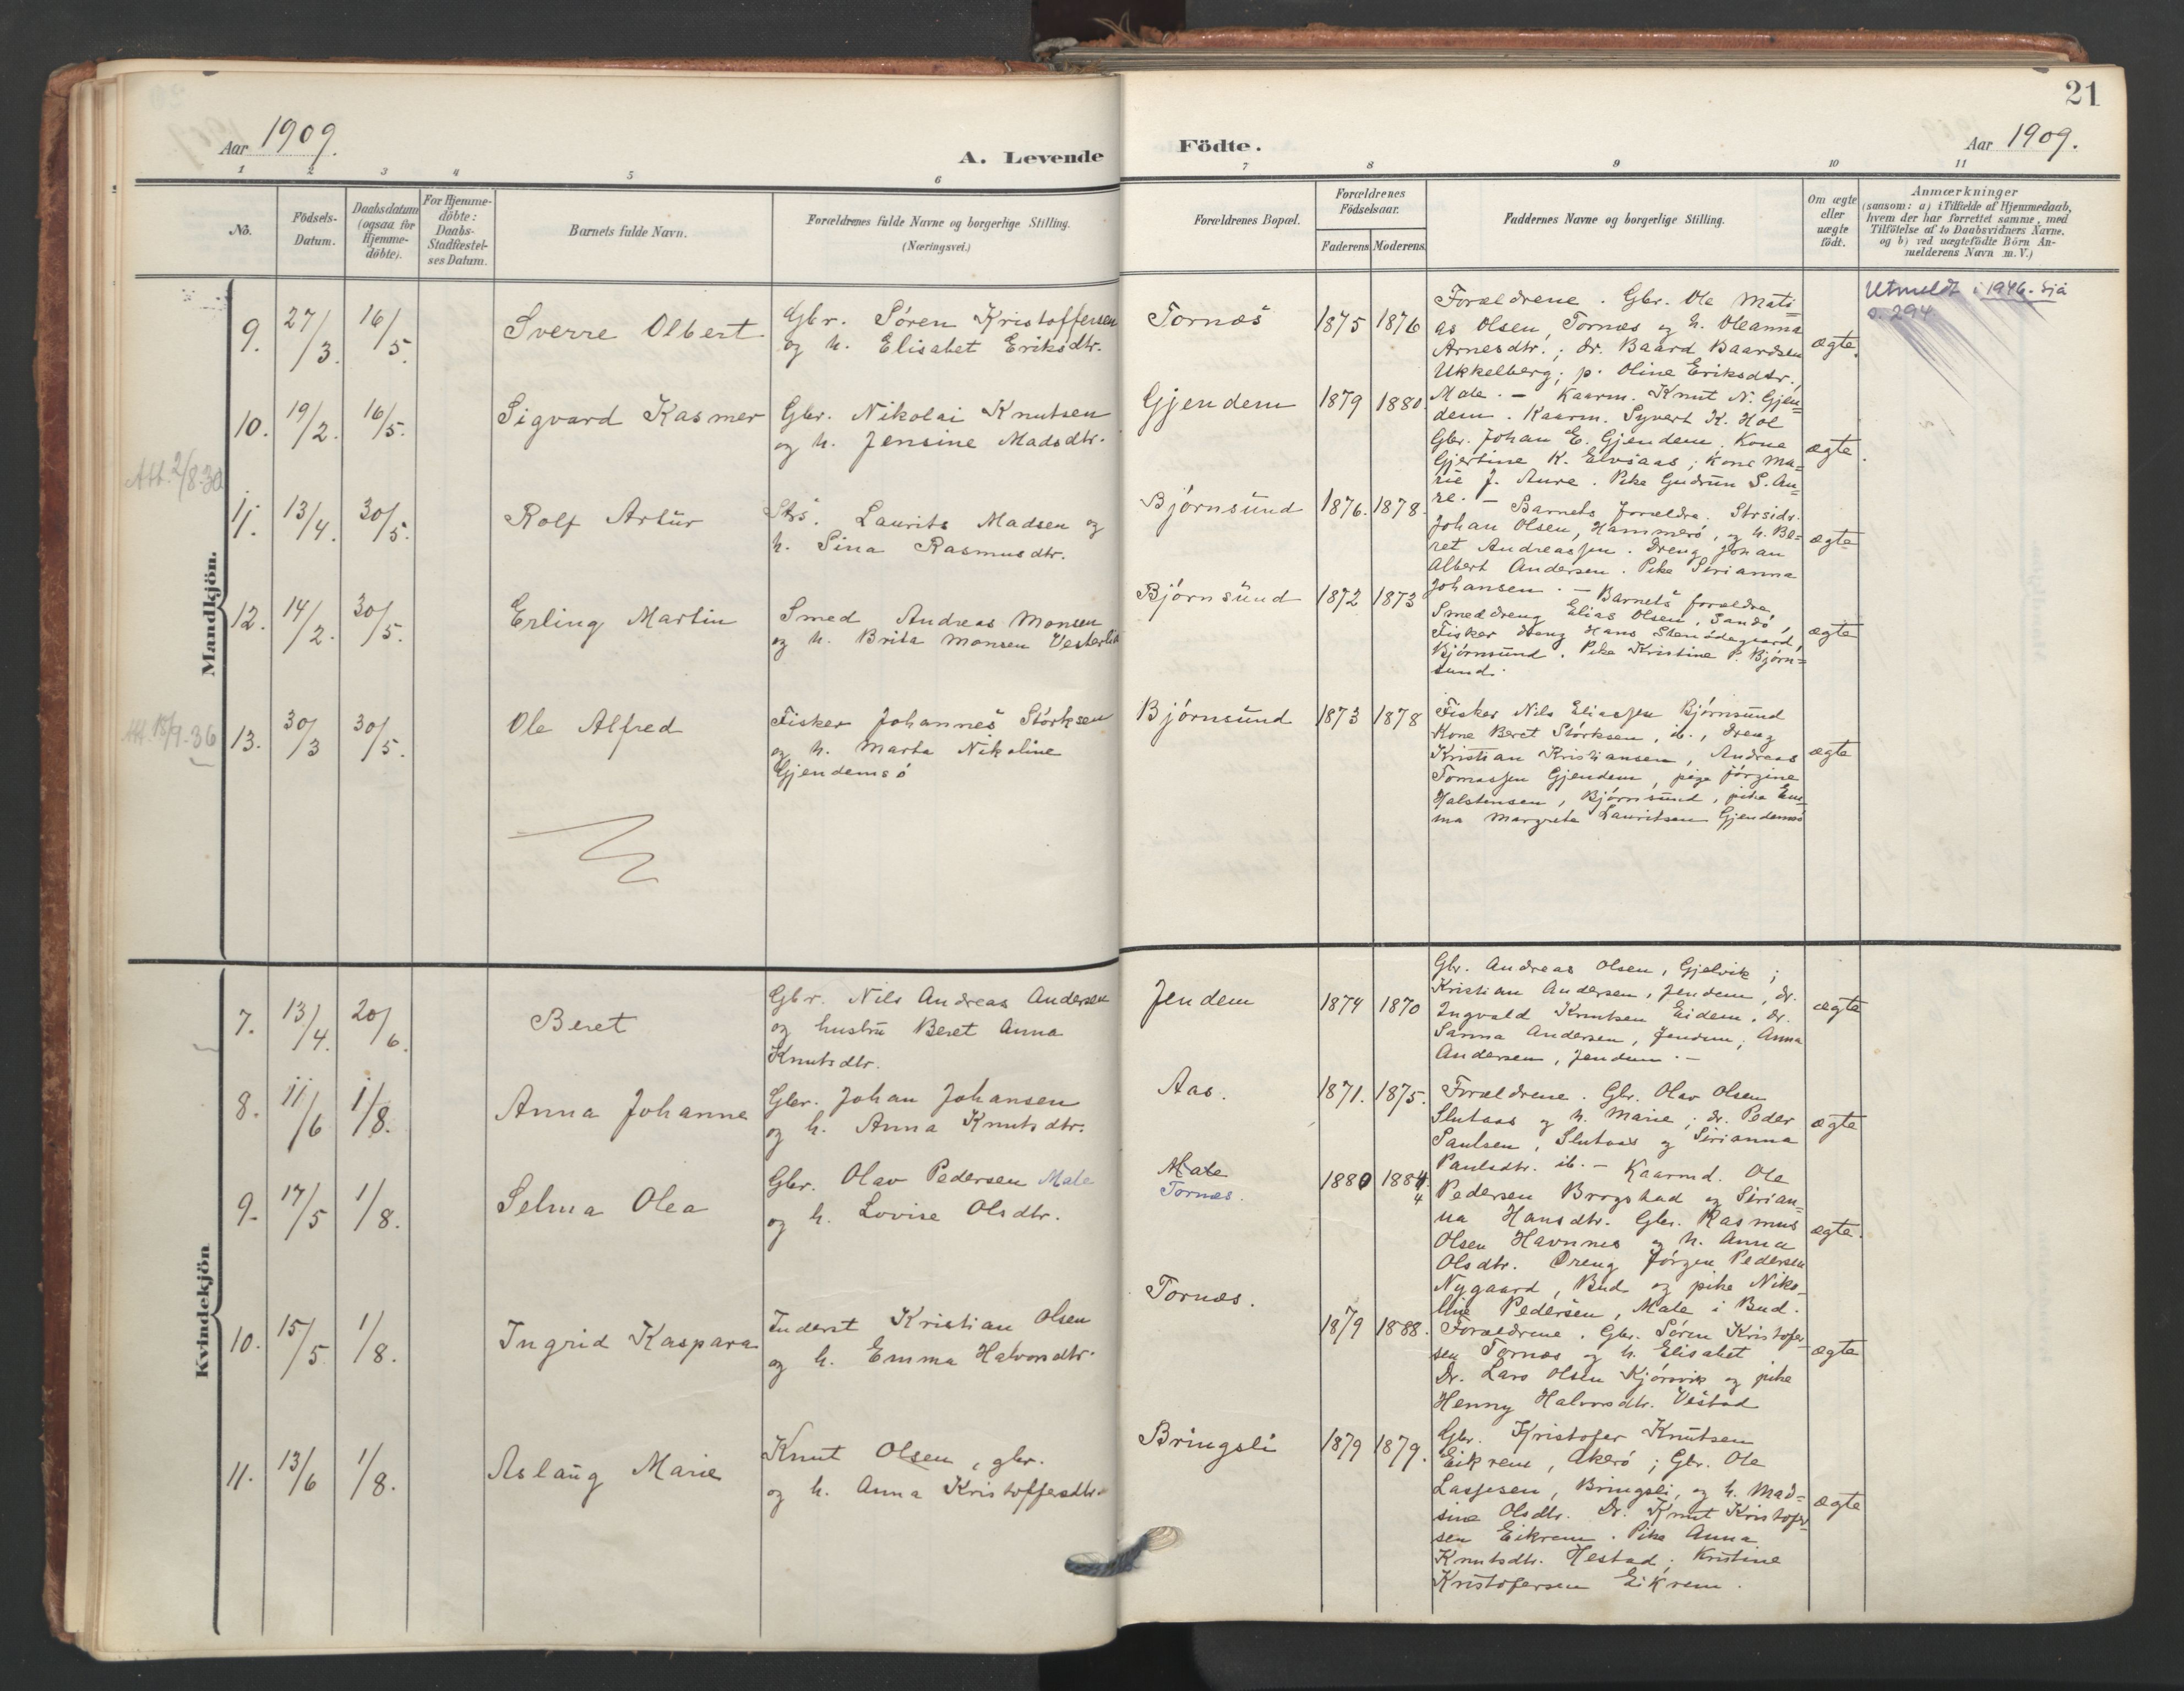 Aar 1909.
A. Levende
1 2 3 4 5 6
No.
Födsels-
Datum.
Daabsdatum
(ogsaa for
Hjemme-
döbte).
For Hjemme-
döbte:
Daabs-
Stadfæstel-
ses Datum.
Barnets fulde Navn.
Forældrenes fulde Navne og borgerlige Stilling.
(Næringsvei.)
Mandkjön.
9. 27/3. 16/5. Sverre Olbert Gbr. Sören Kristoffersen
og h. Elisabet Eriksdtr.
10. 19/2. 16/5. Sigvard Kasmer Gbr. Nikolai Knutsen
og h. Jensine Madsdtr.
Att. 2/8-30
11. 13/4. 30/5. Rolf Artur Strs. Laurits Madsen og
h. Sina Rasmusdtr.
12. 14/2. 30/5. Erling Martin Smed Andreas Monsen
og h. Brita Monsen Vesterlid
Att. 15/9-36
13. 30/3 30/5. Ole Alfred Fisker Johannes Störksen
og h. Marta Nikoline
Gjendemsö
Kvindekjön
7. 13/4. 20/6. Beret Gbr. Nils Andreas Andersen
og hustru Beret Anna
Knutsdtr.
8. 11/6 1/8. Anna Johanne Gbr. Johan Johansen
og h. Anna Knutsdtr.
9. 17/5 1/8. Selma Olea Gbr. Olav Pedersen Male
og h. Lovise Olsdtr.
10. 15/5 1/8. Ingrid Kaspara Inderst Kristian Olsen
og h. Emma Halvorsdtr.
11. 13/6 1/8. Aslaug Marie Knut Olsen, gbr.
og h. Anna Kristoffersdtr.
21
Födte.
Aar 1909.
7 8 9 10 11
Forældrenes Bopæl.
Forældrenes
Födselsaar.
Faderens Moderens
Faddernes Navne og borgerlige Stilling.
Om ægte
eller
uægte
födt.
Anmærkninger
(saasom: a) i Tilfælde af Hjemmedaab,
hvem der har forrettet samme, med
Tilföielse af to Daabsvidners Navne.
og b) ved uægtefödte Börn An-
melderens Navn m. V.)
Tornæs 1875 1876 Forældrene. Gbr. Ole Mati-
as Olsen, Tornæs og h. Oleanna
Arnesdtr.; dr. Baard Baardsen
Ukkelberg; p. Oline Eriksdtr.,
ægte.
Utmeldt i 1946. Sjå
s. 294.
Gjendem 1879 1880. Male. - Kaarm. Knut N. Gjen-
dem. Kaarm. Syvert K. Hol
Gbr. Johan E. Gjendem. Kone
Gjertine K. Elvsaas; Kone Ma-
rie J. Aure. Pike Gudrun S. Au-
ægte.
Björnsund 1876. 1878. re. - Barnets forældre. Strsidr.
Johan Olsen, Hammerö, og h. Be-
ret Andreassen. Dreng Johan
Albert Andersen. Pike Serianna
ægte
Björnsund 1872 1873 Johansen. - Barnets forældre,
Smeddreng Elias Olsen, Sandö,
Fisker dreng Hans Stenödegaard,
Björnsund. Pike Kristine P. Björn-
sund.
ægte
Björnsund 1873 1878 Fisker Nils Eliassen Björnsund
Kone Beret Störksen, ib., dreng
Kristian Kristiansen, Andreas
Tomassen Gjendem, pige Jörgine
Halstensen, Björnsund, pike Em-
ma Margrete Lauritsen Gjendemsö
ægte
Jendem 1874 1870 Gbr. Andreas Olsen, Gjelvik;
Kristian Andersen, Jendem, dr.
Ingvald Knutsen Eidem, dr.
Sanna Andersen, Jendem; Anna
Andersen, Jendem. -
ægte
Aas. 1871. 1875. Forældrene. Gbr. Olav Olsen
Slutaas og h. Marie; dr. Peder
Paulsen, Slutaas og Serianna
Paulsdtr. ib. - Kaarmd. Ole
ægte
Male
Tornæs. 1880 1884.
4
Pedersen Brogstad og Serian-
na Hansdtr. Gbr. Rasmus
Olsen Havnnes og h. Anna
Olsdtr. Dreng Jörgen Pedersen
Nygaard, Bud og pike Niko-
line Pedersen, Male i Bud.
ægte.
Tornæs. 1879 1888. Forældrene. Gbr. Sören Kristofer-
sen Tornæs og h. Elisabet
Dr. Lars Olsen Kjörsvik og pike
Henny Halvorsdtr. Vestad
ægte
Bringsli 1879 1879. Gbr. Kristofer Knutsen
Eikrem, Akerö; Gbr. Ole
Lassesen, Bringsli, og h. Mad-
sine Olsdtr. Dr. Knut Kristofer-
sen Eikrem. Pike Anna
Knutsdtr. Hestad; Kristine
Kristofersen Eikrem.
ægte